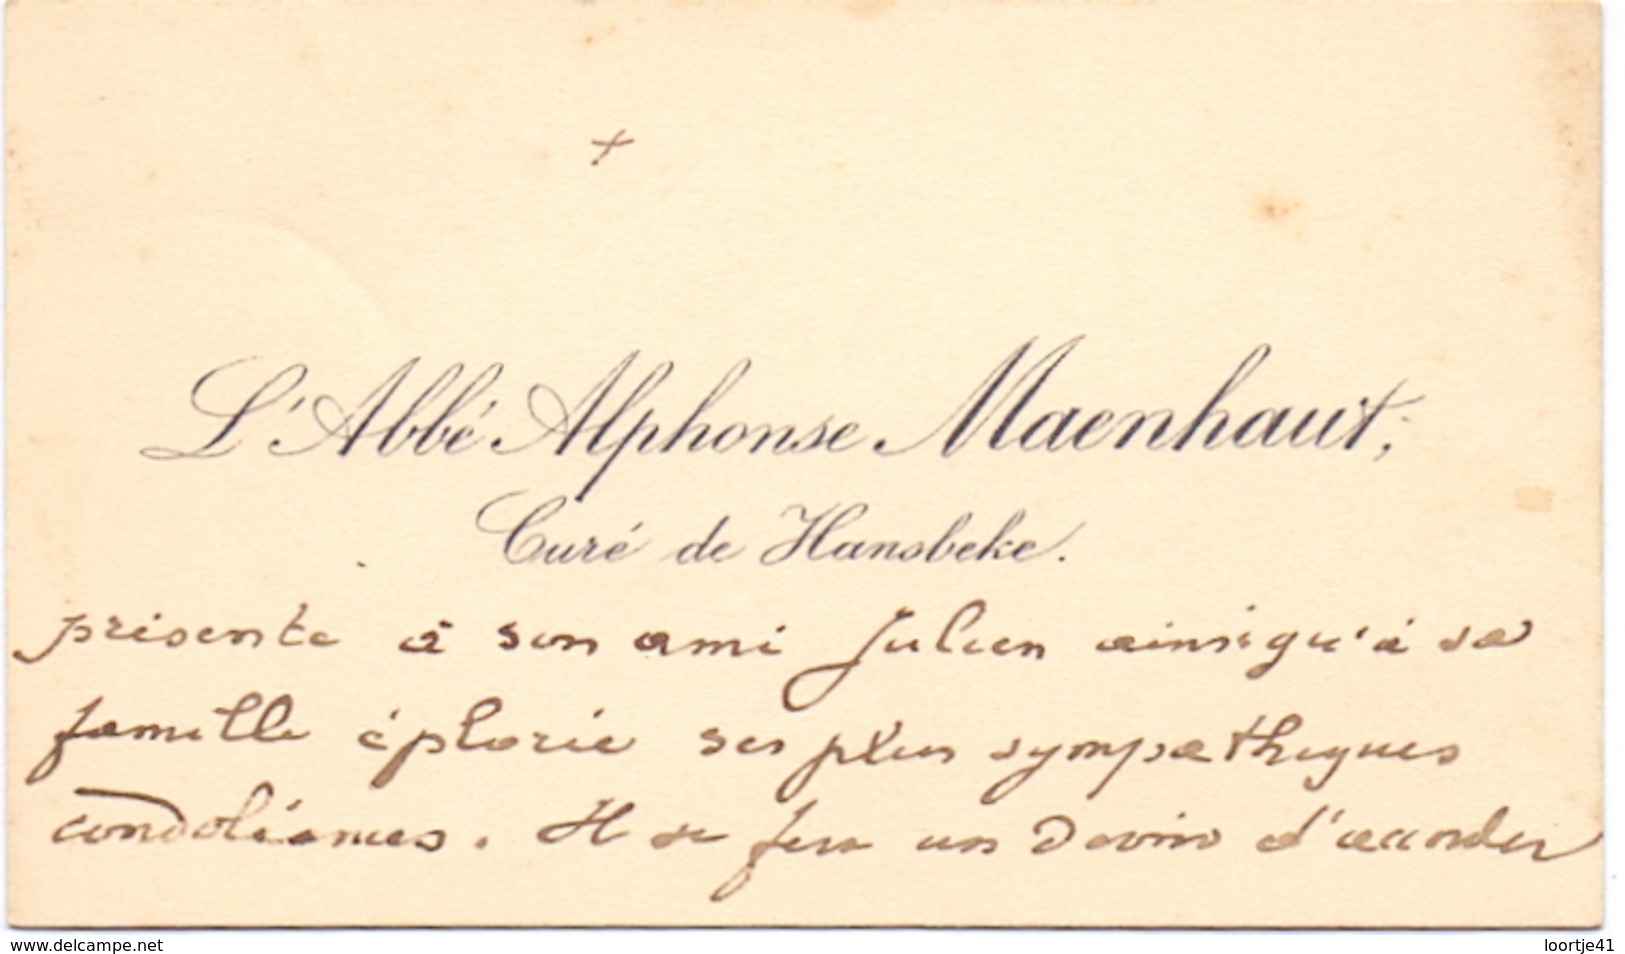 +
L'Abbé Alphonse Maenhaut,
Curé de Hansbeke.
présente à son ami Julien ainsi qu'à sa
famille éplorée ses plus sympathiques
condoléances. Il se fera un devoir d'accorder
www.delcampe.net
loortje41